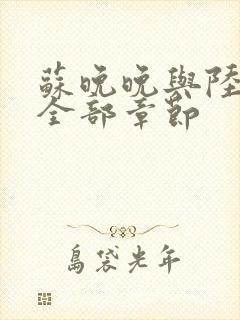 蘇晚晚與陸
全部章節
島袋光年